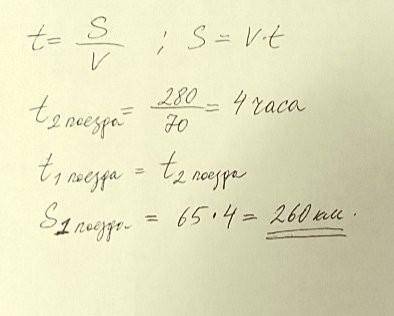 t = S/V ; S = V·t
t₂ поезда = 280/70 = 4 часа
t₁ поезда = t₂ поезда
S₁ поезда = 65·4 = 260 км.